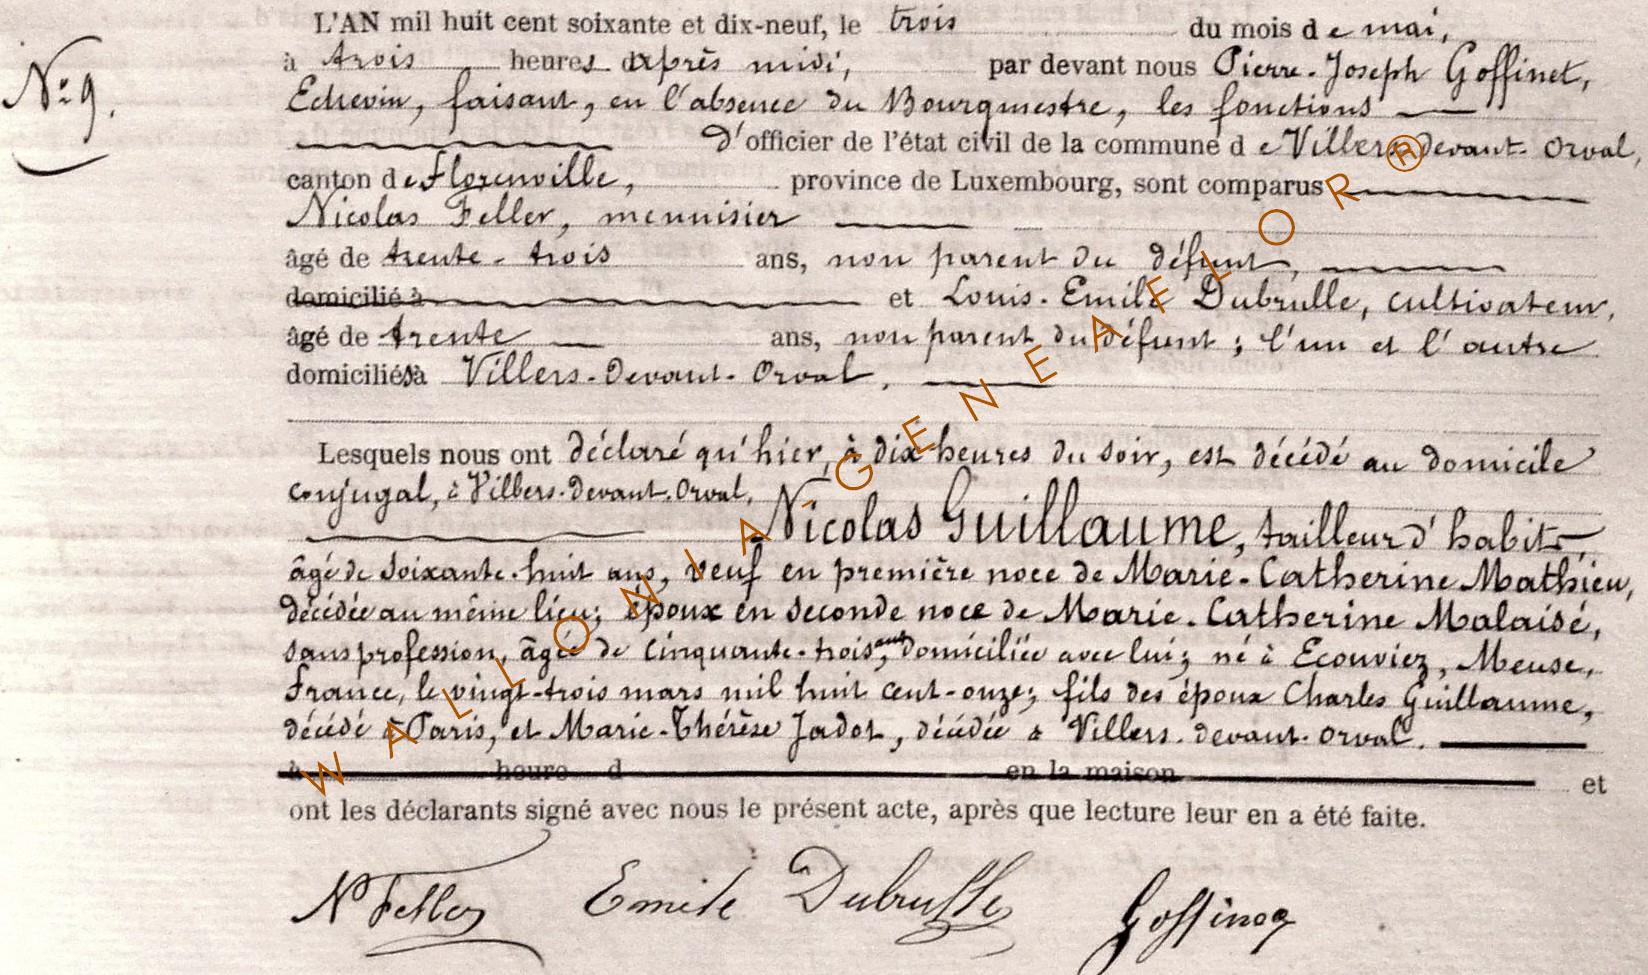 L'AN mil huit cent soixante et dix-neuf, le trois du mois de mai,
N° 9.
à trois heures après midi, par devant nous Pierre-Joseph Goffinet,
Echevin, faisant, en l'absence du Bourgmestre, les fonctions
d'officier de l'état civil de la commune de Villers-devant-Orval,
canton de Florenville, province de Luxembourg, sont comparus
Nicolas Feller, menuisier
âgé de trente-trois ans, non parent du défunt,
domicilié à et Louis-Emile Dubrulle, cultivateur,
âgé de trente ans, non parent du défunt ; l'un et l'autre
domiciliés à Villers-devant-Orval,
Lesquels nous ont déclaré qu'hier, à dix heures du soir, est décédé au domicile
conjugal, à Villers-devant-Orval,
Nicolas Guillaume, tailleur d'habits
âgé de soixante-huit ans, veuf en première noce de Marie-Catherine Mathieu,
décédée au même lieu; époux en seconde noce de Marie-Catherine Malaisé,
sans profession, âgée de cinquante-trois ans, domiciliée avec lui; né à Ecouviez, Meuse,
France, le vingt-trois mars mil huit cent-onze; fils des époux Charles Guillaume,
décédé à Paris, et Marie-Thérèse Jadot, décédée à Villers-devant-Orval.
à heure d en la maison et
ont les déclarants signé avec nous le présent acte, après que lecture leur en a été faite.
N Feller Emile Dubrulle Goffinet
WALLONIA-GENEAFLOR®